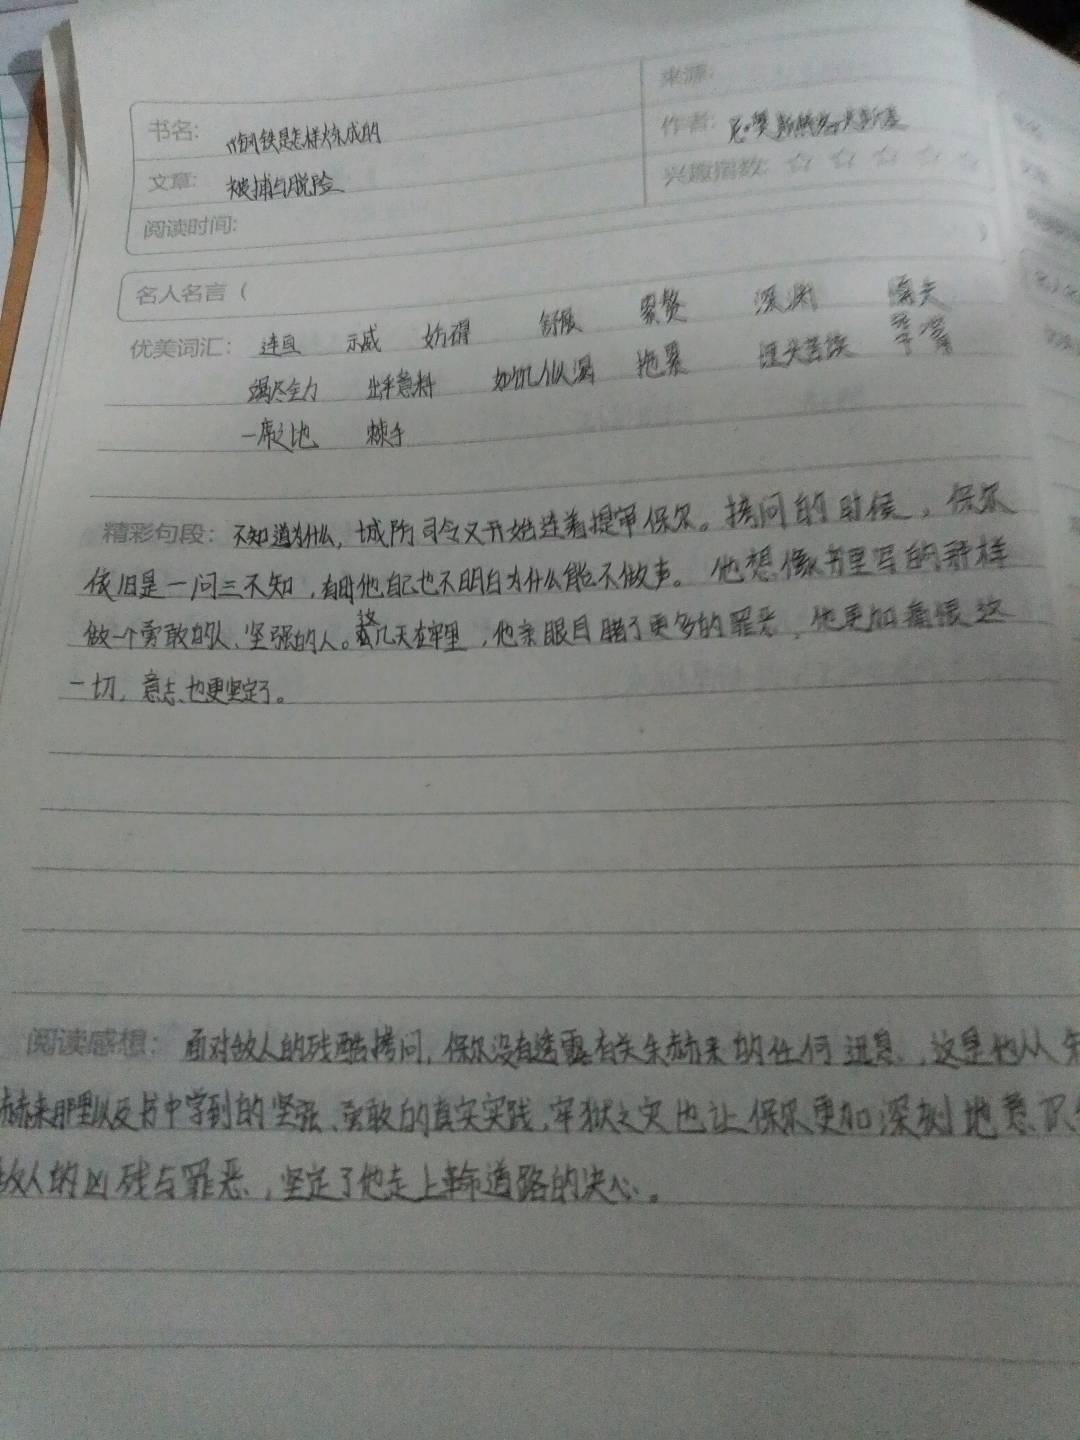 来源:
书名: 《钢铁是怎样炼成的
作者: 尼·奥斯特洛夫斯基
文章: 被捕与脱险
兴趣指数: ☆ ☆ ☆ ☆ ☆
阅读时间:
名人名言 (
优美词汇: 连亘 示威 妨碍 舒服 累赘 深渊
竭尽全力 出乎意料 如饥似渴 拖累 埋头苦读
一席之地 棘手
精彩句段: 不知道为什么, 城防司令又开始连着提审保尔。拷问的时候, 保尔
依旧是一问三不知, 有时他自己也不明白为什么能不做声。他想像书里写的那样
做一个勇敢的人、坚强的人。这几天在牢里, 他亲眼目睹了更多的罪恶, 他更加痛恨这
一切, 意志也更坚定了。
阅读感想: 面对敌人的残酷拷问, 保尔没有透露有关朱赫来的任何讯息, 这是他从朱
赫来那里以及书中学到的坚强、勇敢的真实实践, 牢狱之灾也让保尔更加深刻地意识
敌人的凶残与罪恶, 坚定了他走上革命道路的决心。